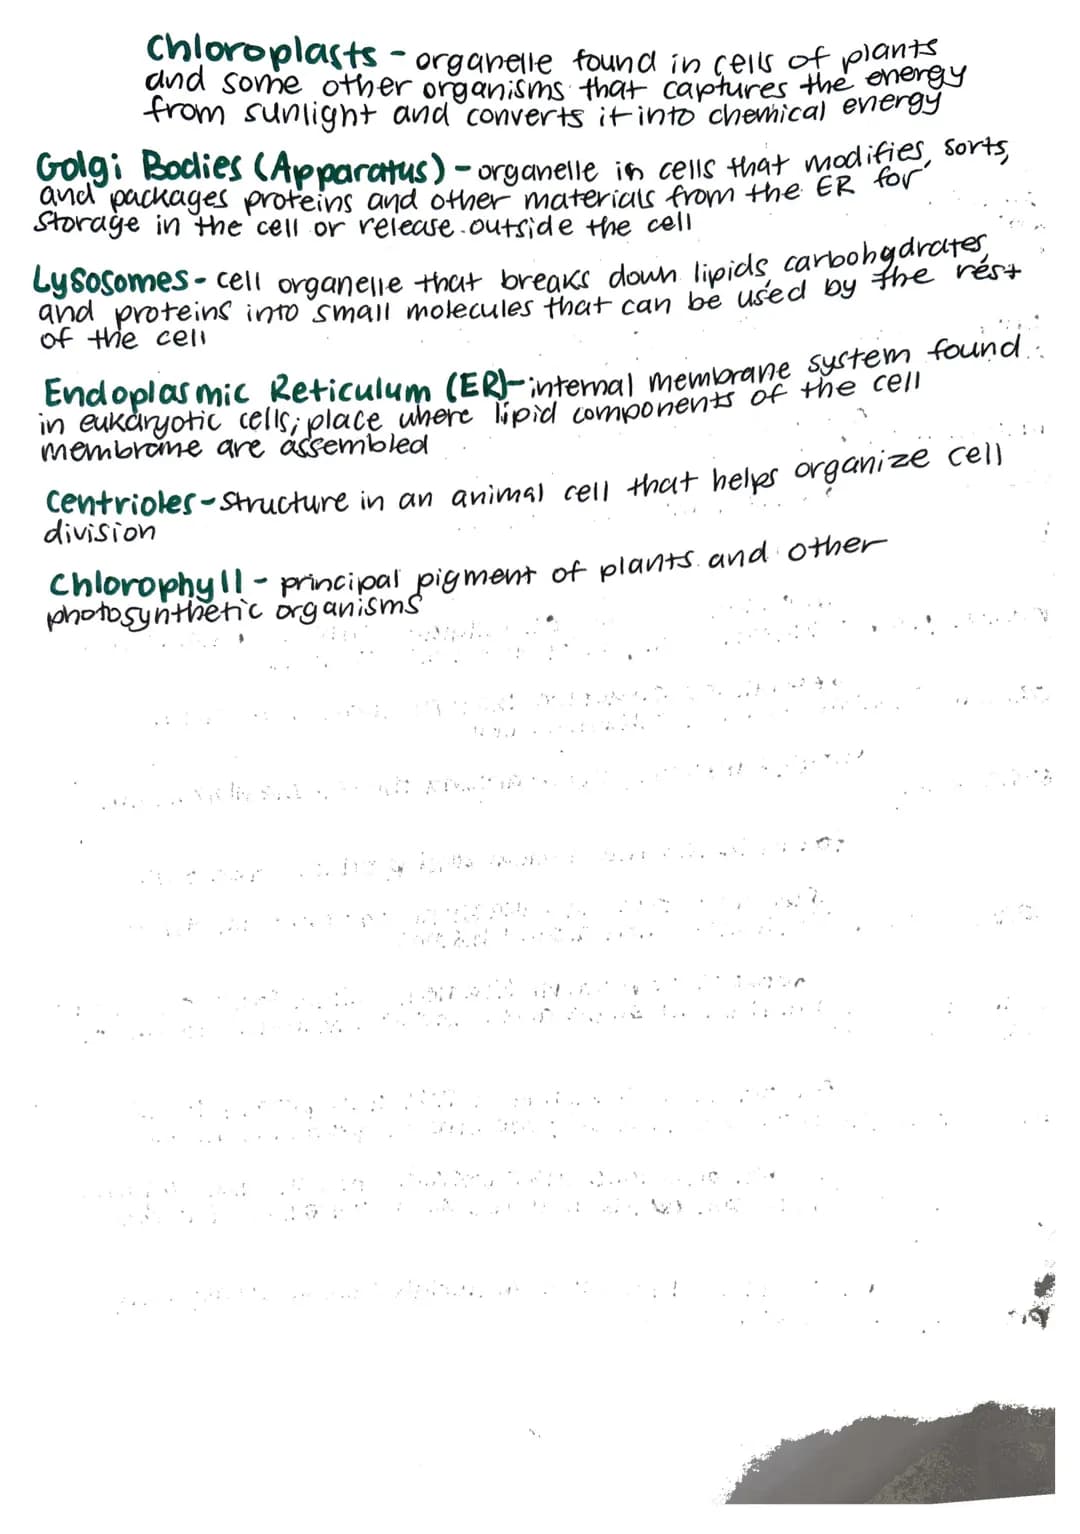 Chloroplasts - organelle found in cells of plants
and some other organisms that captures the energy
from sunlight and converts it into chemical energy
Golgi Bodies (Apparatus) - organelle in cells that modifies, sorts,
and packages proteins and other materials from the ER for
storage in the cell or release outside the cell
Lysosomes - cell organelle that breaks down lipids, carbohydrates,
and proteins into small molecules that can be used by the rest
of the cell
Endoplasmic Reticulum (ER) - internal membrane system found
in eukaryotic cells; place where lipid components of the cell
membrane are assembled
Centrioles - structure in an animal cell that helps organize cell
division
Chlorophyll - principal pigment of plants and other
photosynthetic organisms